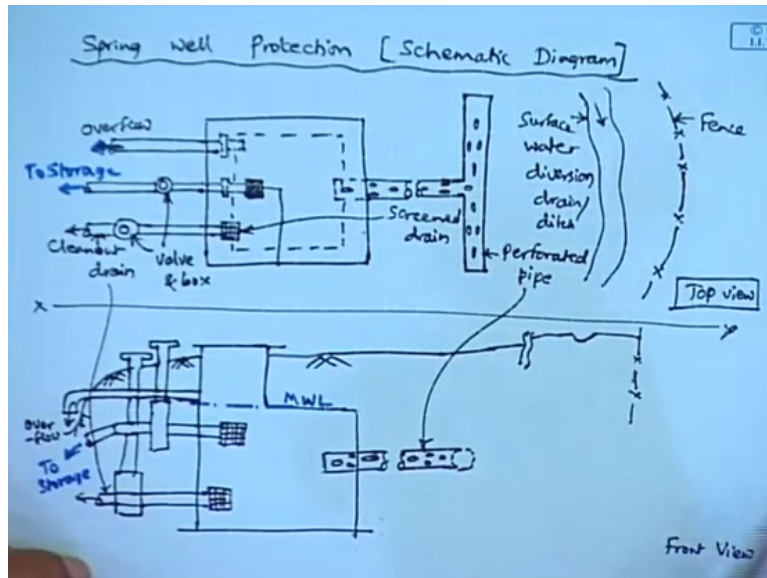 Spring well Protection [Schematic Diagram]
©
I.I.
overflow
To Storage
Cleanout
drain
Valve
& box
Screened
drain
Perforated
pipe
Surface
water
diversion
drain/
ditch
Fence
Top view
MWL
over
-flow
To
Storage
Front View